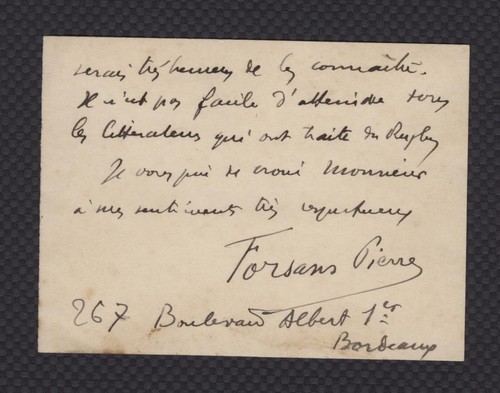 serais très heureux de les connaître.
Il n'est pas facile d'atteindre tous
les littérateurs qui ont traité du Rugby
Je vous prie de croire Monsieur
à mes sentiments très respectueux
Forsans Pierre
267 Boulevard Albert 1er
Bordeaux